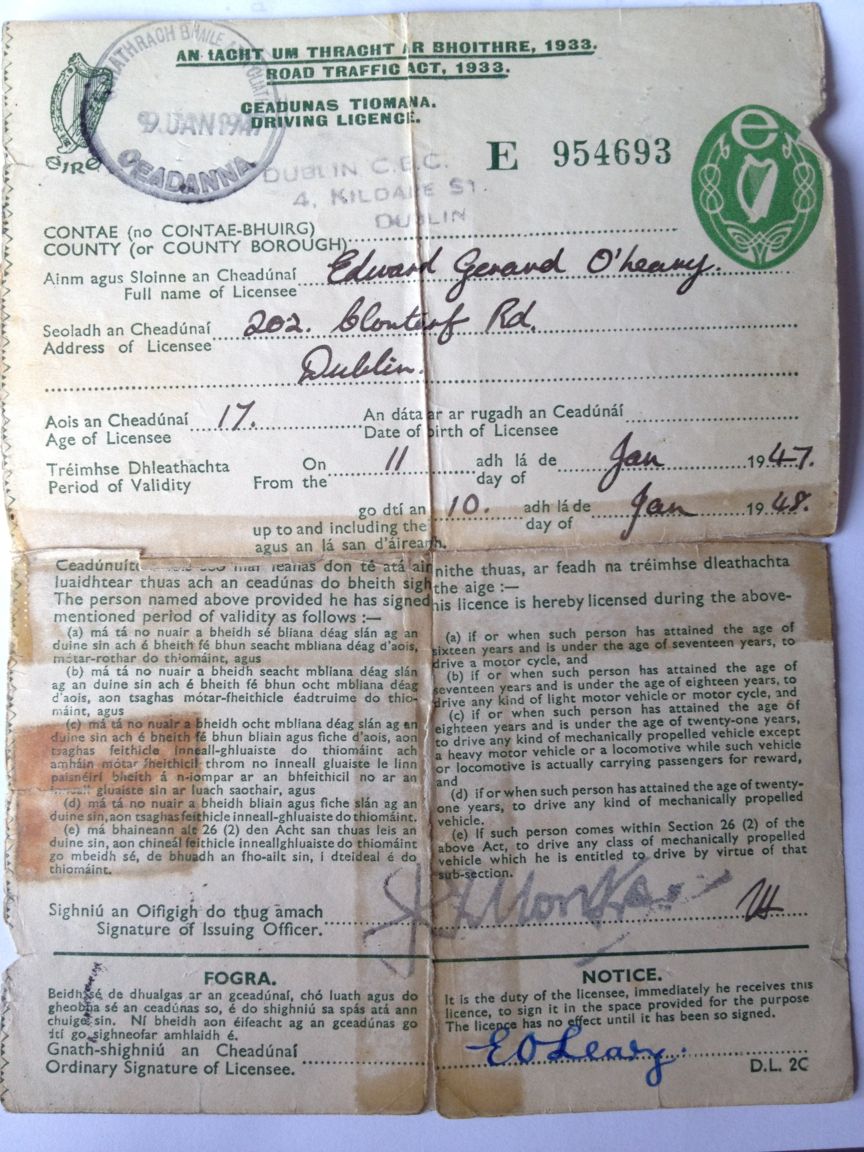 AN tACHT UM THRACHT AR BHOITHRE, 1933.
ROAD TRAFFIC ACT, 1933.
CEADUNAS TIOMANA.
DRIVING LICENCE.
9 JAN 1947
CEADANNA
éire
e
E 954693
DUBLIN C.B.C.
4, KILDARE ST.
DUBLIN
CONTAE (no CONTAE-BHUIRG)
COUNTY (or COUNTY BOROUGH)
Ainm agus Sloinne an Cheadúnaí
Full name of Licensee
Edward Gerard O'Leary.
Seoladh an Cheadúnaí
Address of Licensee
202. Clontarf Rd.
Dublin.
Aois an Cheadúnaí 17. An dáta ar ar rugadh an Ceadúnáí
Age of Licensee Date of birth of Licensee
Tréimhse Dhleathachta On 11 adh lá de Jan 1947.
Period of Validity From the day of
go dtí an 10. adh lá de Jan 1948.
up to and including the day of
agus an lá san d'áireamh.
Ceadúnuíte mar leanas don té atá ainmnithe thuas, ar feadh na tréimhse dleathachta
luaidhtear thuas ach an ceadúnas do bheith sighnithe aige :—
The person named above provided he has signed this licence is hereby licensed during the above-
mentioned period of validity as follows :—
(a) má tá no nuair a bheidh sé bliana déag slán ag an
duine sin ach é bheith fé bhun seacht mbliana déag d'aois,
mótar-rothar do thiomáint, agus
(b) má tá no nuair a bheidh seacht mbliana déag slán
ag an duine sin ach é bheith fé bhun ocht mbliana déag
d'aois, aon tsaghas mótar-fheithicle éadtruime do thio-
máint, agus
(c) má tá no nuair a bheidh ocht mbliana déag slán ag an
duine sin ach é bheith fé bhun bliain agus fiche d'aois, aon
tsaghas feithicle inneall-ghluaiste do thiomáint ach
amháin mótar fheithicil throm no inneall gluaiste le linn
paisnéirí bheith á n-iompar ar an bhfeithicil no ar an
inneall gluaiste sin ar luach saothair, agus
(d) má tá no nuair a bheidh bliain agus fiche slán ag an
duine sin, aon tsaghas feithicle inneall-ghluaiste do thiomáint.
(e) má bhaineann alt 26 (2) den Acht san thuas leis an
duine sin, aon chineál feithicle inneallghluaiste do thiomáint
go mbeidh sé, de bhuadh an fho-ailt sin, i dteideal é do
thiomáint.
(a) if or when such person has attained the age of
sixteen years and is under the age of seventeen years, to
drive a motor cycle, and
(b) if or when such person has attained the age of
seventeen years and is under the age of eighteen years, to
drive any kind of light motor vehicle or motor cycle, and
(c) if or when such person has attained the age of
eighteen years and is under the age of twenty-one years,
to drive any kind of mechanically propelled vehicle except
a heavy motor vehicle or a locomotive while such vehicle
or locomotive is actually carrying passengers for reward,
and
(d) if or when such person has attained the age of twenty-
one years, to drive any kind of mechanically propelled
vehicle.
(e) If such person comes within Section 26 (2) of the
above Act, to drive any class of mechanically propelled
vehicle which he is entitled to drive by virtue of that
sub-section.
Sighniú an Oifigigh do thug amach
Signature of Issuing Officer.
FOGRA.
Beidh sé de dhualgas ar an gceadúnaí, chó luath agus do
gheobha sé an ceadúnas so, é do shighniú sa spás atá ann
chuige sin. Ní bheidh aon éifeacht ag an gceadúnas go
dtí go sighneofar amhlaidh é.
Gnath-shighniú an Cheadúnaí
Ordinary Signature of Licensee.
NOTICE.
It is the duty of the licensee, immediately he receives this
licence, to sign it in the space provided for the purpose
The licence has no effect until it has been so signed.
E O'Leary.
D.L. 2C